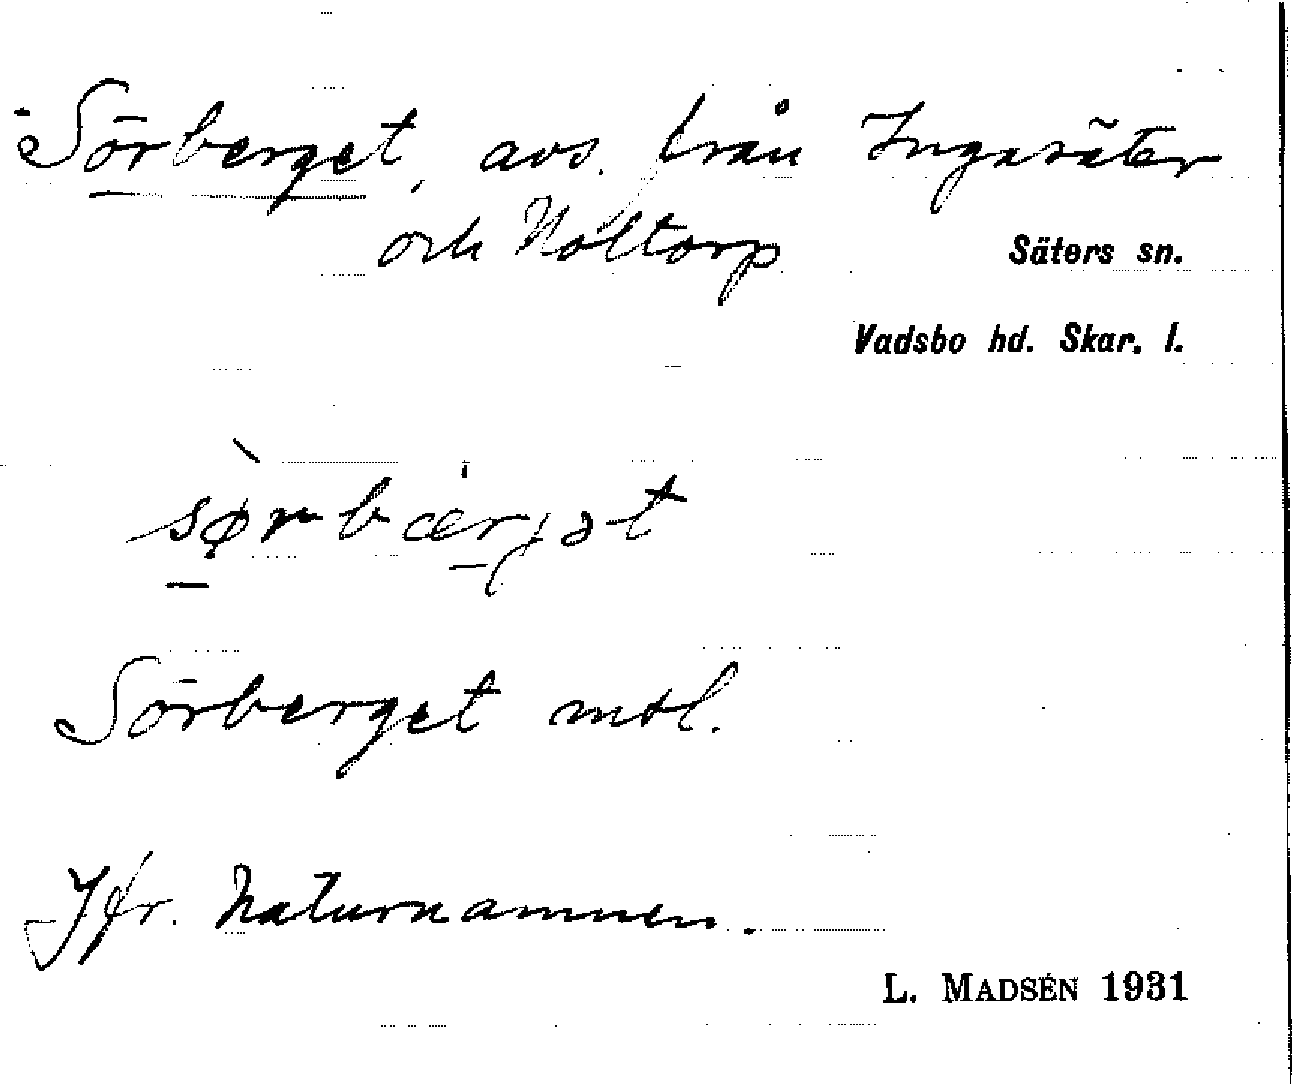 Sörberget, avs. från Ingasäter
och Noltorp
Säters sn.
Vadsbo hd. Skar. l.
sørbærjət
Sörberget mtl.
Jfr. Naturnamnen.
L. MADSÉN 1931